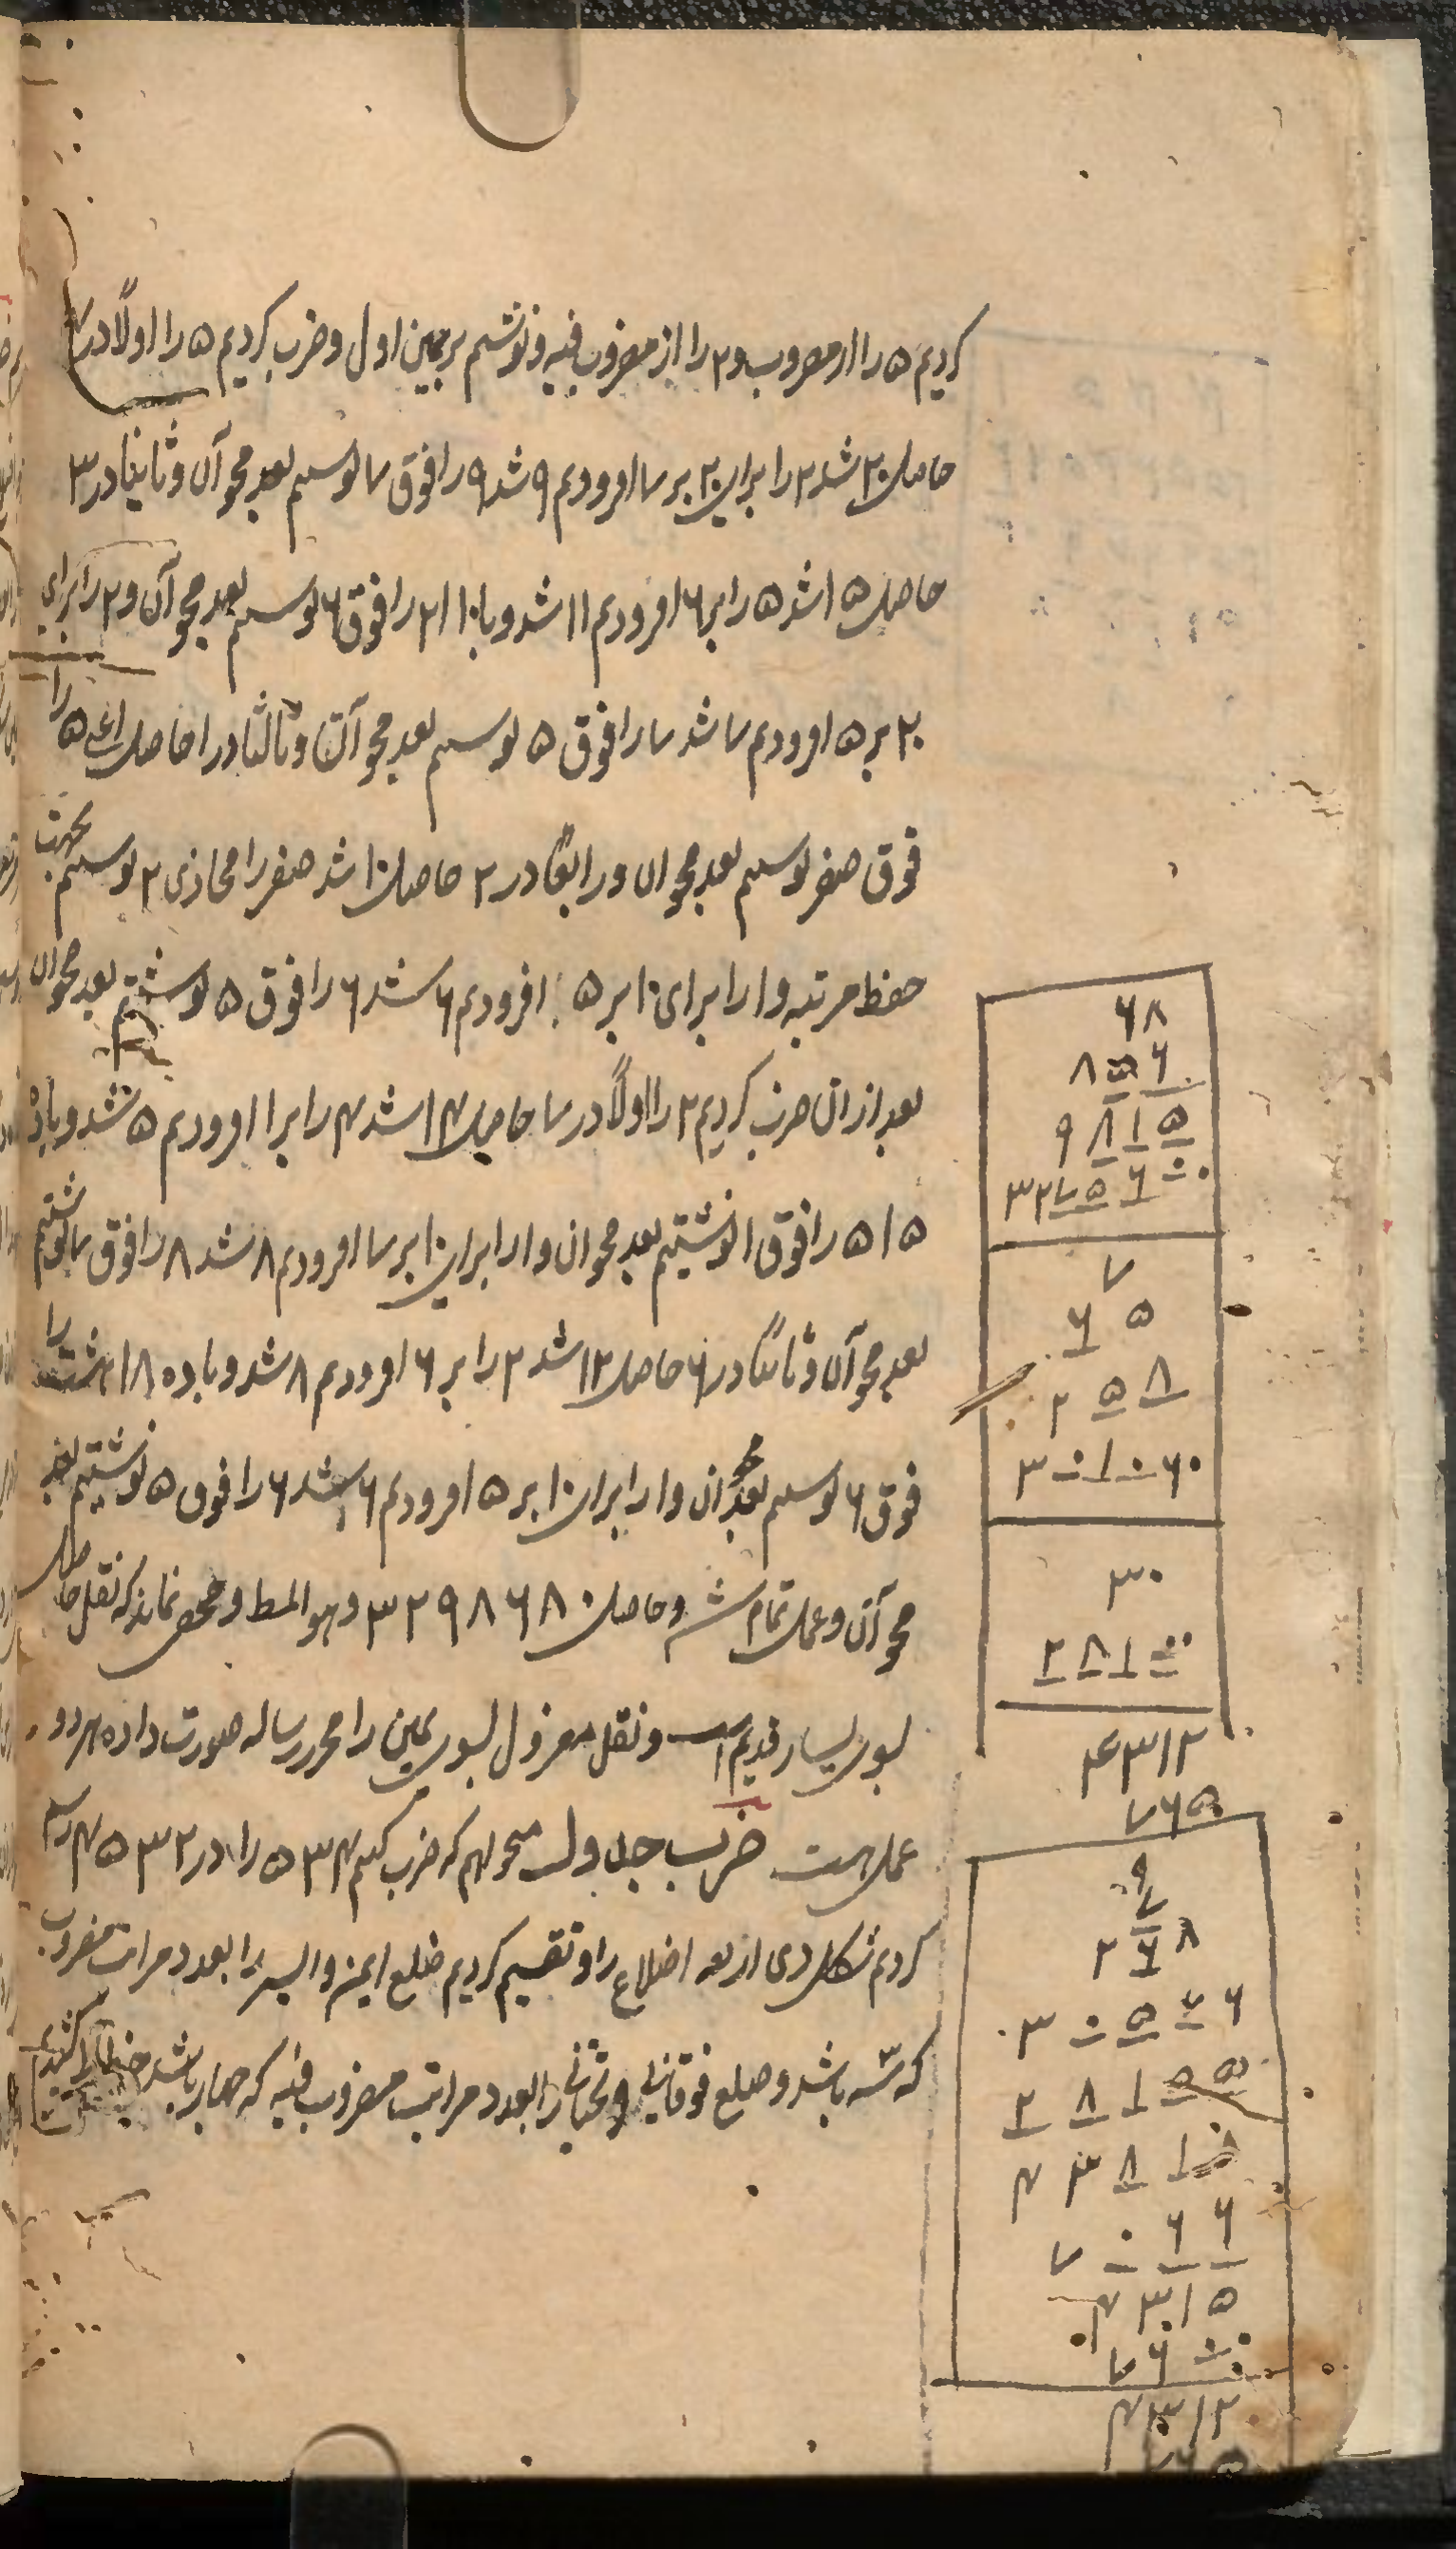 کردیم ۵ را از مضروب و ۲ را از مضروب فیه و نوشتیم بر یمین اول و ضرب کردیم ۵ را اولاً در ۴
حاصل ۲۰ شد ۲ را برای ۲۰ بر ۷ افزودیم ۹ شد ۹ را فوق ۷ نوشتیم بعد محو آن و ثانیا در ۳
حاصل ۱۵ شد ۵ را بر ۶ افزودیم ۱۱ شد و با ۱۰ ۲۱ را فوق ۶ نوشتیم بعد محو آن و ۲ را برای
۲۰ بر ۵ افزودیم ۷ شد ۷ را فوق ۵ نوشتیم بعد محو آن و ثالثا در ۱ حاصل اعنی ۵ را
فوق صفر نوشتیم بعد محو آن و رابعا در ۲ حاصل ۱۰ شد صفر را محاذی ۲ نوشتیم بجهت
حفظ مرتبه و ۱ را برای ۱۰ بر ۵ افزودیم ۶ شد ۶ را فوق ۵ نوشتیم بعد محو آن
بعد از آن ضرب کردیم ۲ را اولاً در ۷ حاصل ۱۴ شد ۴ را بر ۱ افزودیم ۵ شد و با ده
۱۵ ۵ را فوق ۱ نوشتیم بعد محو آن و ۱ را برای ۱۰ بر ۷ افزودیم ۸ شد ۸ را فوق ۷ نوشتیم
بعد محو آن و ثانیاً در ۶ حاصل ۱۲ شد ۲ را بر ۶ افزودیم ۸ شد و با ده ۱۸ را
فوق ۶ نوشتیم بعد محو آن و ۱ را برای ۱۰ بر ۵ افزودیم ۶ شد ۶ را فوق ۵ نوشتیم بعد
محو آن و عمل تمام شد و حاصل ۳۲۹۸۶۸۰ و هو المط و مخفی نماند که نقل حاصل
بسوی یسار قدیم است و نقل معزول بسوی یمین را محرر رساله صورت داده هر دو
عمل هست ضرب جدول میخواهیم که ضرب کنیم ۵۳۴ را در ۴۵۳۲
کردیم شکل ذی اربعه اضلاع را و تقسیم کردیم ضلع ایمن و ایسر را بعدد مراتب مضروب
که سه باشد و ضلع فوقانی و تحتانی را بعدد مراتب مضروب فیه که چهار باشد
۶۸
۸۵۶
۹۸۱۵
۳۲۷۵۶۰۰
۷
۶۵
۲۵۸
۳۰۱۰۶۰
۳۰
۲۸۱۰۰
۴۳۱۲
۷۶۵
۹
۷
۲۶۸
۳۰۵۷۶
۲۸۱۵۵
۴۳۸۱
۷۰۶۶
۴۳۱۵
۷۶۰۰
۴۳۱۲
۷۶۵